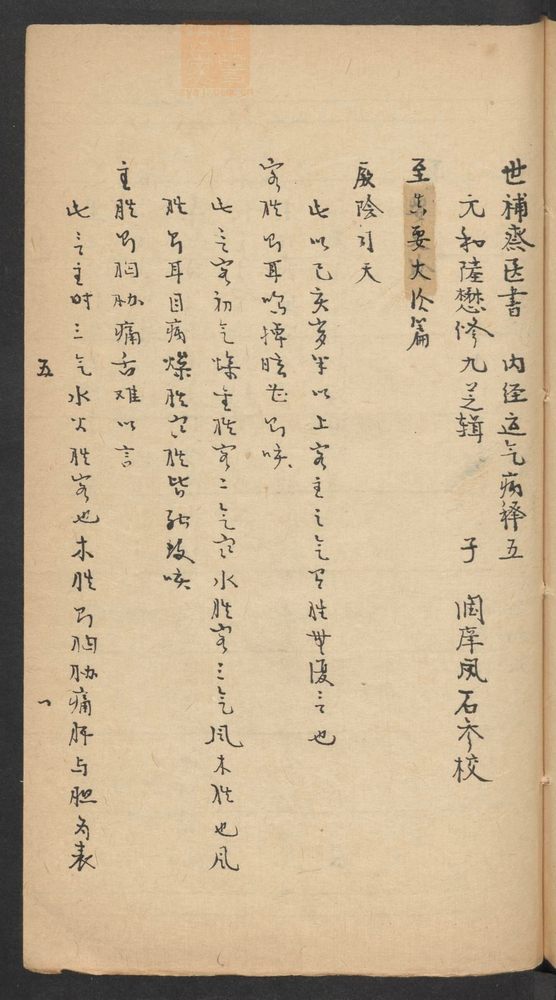 世补斋医书 内经运气病释五
元和陆懋修九芝辑 子 润庠凤石参校
至真要大论篇
厥阴司天
此以巳亥岁半以上客主之气有胜无复言也
客胜则耳鸣掉眩甚则咳
此言客初气燥金胜客二气寒水胜客三气风木胜也风
胜则耳目病燥胜寒胜皆能致咳
主胜则胸胁痛舌难以言
此言主时三气木火胜客也木胜则胸胁痛肝与胆为表
五 一